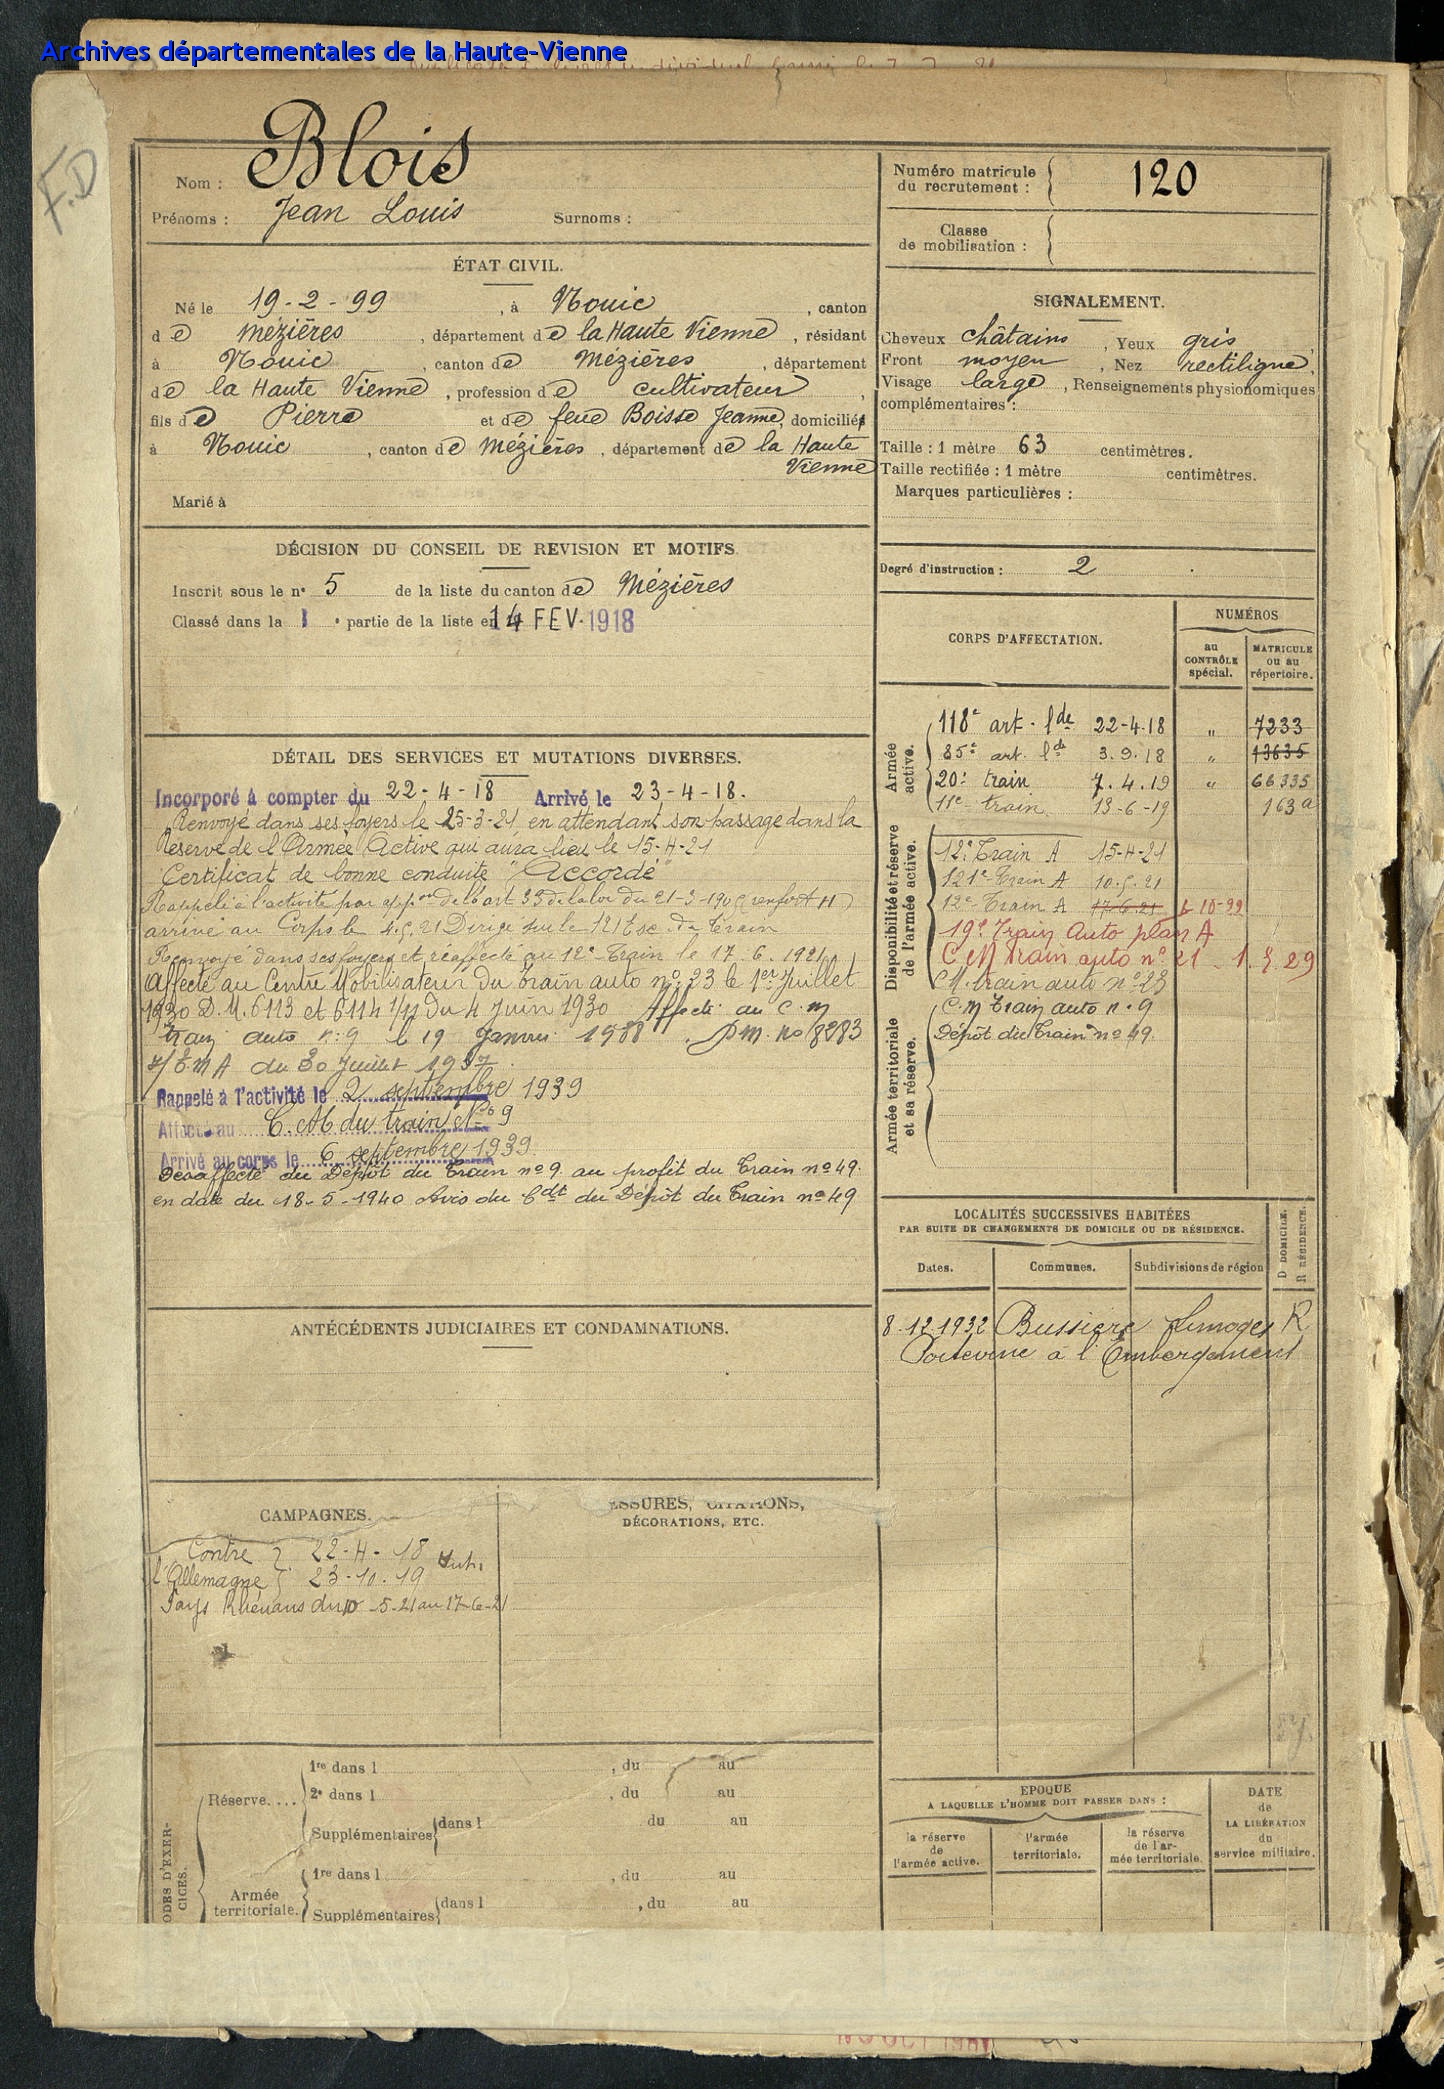 Archives départementales de la Haute-Vienne
F.D
Nom : Blois
Prénoms : Jean Louis Surnoms :
Numéro matricule du recrutement : 120
Classe de mobilisation :
ÉTAT CIVIL.
Né le 19-2-99, à Nouic, canton
de Mézières, département de la Haute Vienne, résidant
à Nouic, canton de Mézières, département
de la Haute Vienne, profession de cultivateur,
fils de Pierre et de feue Boisse Jeanne, domiciliés
à Nouic, canton de Mézières, département de la Haute
Vienne
Marié à
SIGNALEMENT.
Cheveux châtains, Yeux gris,
Front moyen, Nez rectiligne,
Visage large, Renseignements physionomiques
complémentaires :
Taille : 1 mètre 63 centimètres.
Taille rectifiée : 1 mètre centimètres.
Marques particulières :
DÉCISION DU CONSEIL DE REVISION ET MOTIFS.
Inscrit sous le n° 5 de la liste du canton de Mézières
Classé dans la 1 e partie de la liste en 14 FEV. 1918
Degré d'instruction : 2
DÉTAIL DES SERVICES ET MUTATIONS DIVERSES.
Incorporé à compter du 22-4-18 Arrivé le 23-4-18.
Renvoyé dans ses foyers le 25-3-21 en attendant son passage dans la
Réserve de l'Armée Active qui aura lieu le 15-4-21
Certificat de bonne conduite "Accordé"
Rappelé à l'activité par appon de l'art 33 de la loi du 21-3-190
arrivé au Corps le 4.5.21 Dirigé sur le 121 Esc du Train
Renvoyé dans ses foyers et réaffecté au 12e Train le 17.6.1921
Affecté au Centre Mobilisateur du train auto n° 23 le 1er Juillet
1930 D.M. 6113 et 6114 1/11 du 4 Juin 1930 Affecté au C.M
train auto n° 9 le 19 Janvier 1938. DM. no 8283
du 30 Juillet 1937
Rappelé à l'activité le 2 septembre 1939
Affecté au C.M du train N° 9
Arrivé au corps le 6 septembre 1939
Desaffecté du Dépôt du Train n° 9 au profit du Train n° 49.
en date du 18-5-1940 Avis du Cdt du Dépôt du Train n° 49
CORPS D'AFFECTATION.
NUMÉROS
au CONTRÔLE spécial.
MATRICULE ou au répertoire.
Armée active.
118e art. lde 22-4-18 " 7233
85e art. lde 3.9.18 " 13635
20e train 7.4.19 " 66335
11e train 13-6-19 163a
Disponibilité et réserve de l'armée active.
12e Train A 15-4-21
121e Train A 10.5.21
12e Train A 17.6.21
19e Train Auto plan A
CM train auto n° 21 1.5.29
CM. train auto n° 23
Armée territoriale et sa réserve.
C.M Train auto n° 9
Dépôt du Train n° 49.
LOCALITÉS SUCCESSIVES HABITÉES
PAR SUITE DE CHANGEMENTS DE DOMICILE OU DE RÉSIDENCE.
D DOMICILE. R RÉSIDENCE.
Dates. Communes. Subdivisions de région
8-12-1932 Bussière Limoges R
Poitevine à l'Embergement
ANTÉCÉDENTS JUDICIAIRES ET CONDAMNATIONS.
CAMPAGNES.
Contre l'Allemagne } 22-4-18
23-10-19
Pays Rhénans du 10-5-21 au 17-6-21
ESSURES, CITATIONS,
DÉCORATIONS, ETC.
ODES D'EXER-
CICES.
Réserve....
1re dans l , du au
2e dans l , du au
Supplémentaires dans l du au
Armée territoriale.
1re dans l , du au
Supplémentaires dans l , du au
EPOQUE
A LAQUELLE L'HOMME DOIT PASSER DANS :
la réserve de l'armée active.
l'armée territoriale.
la réserve de l'armée territoriale.
DATE de LA LIBÉRATION du service militaire.